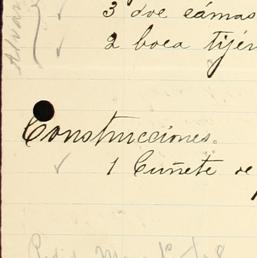 3 doe cámas
2 boca tijér
Construcciones.
1 Cuñete de